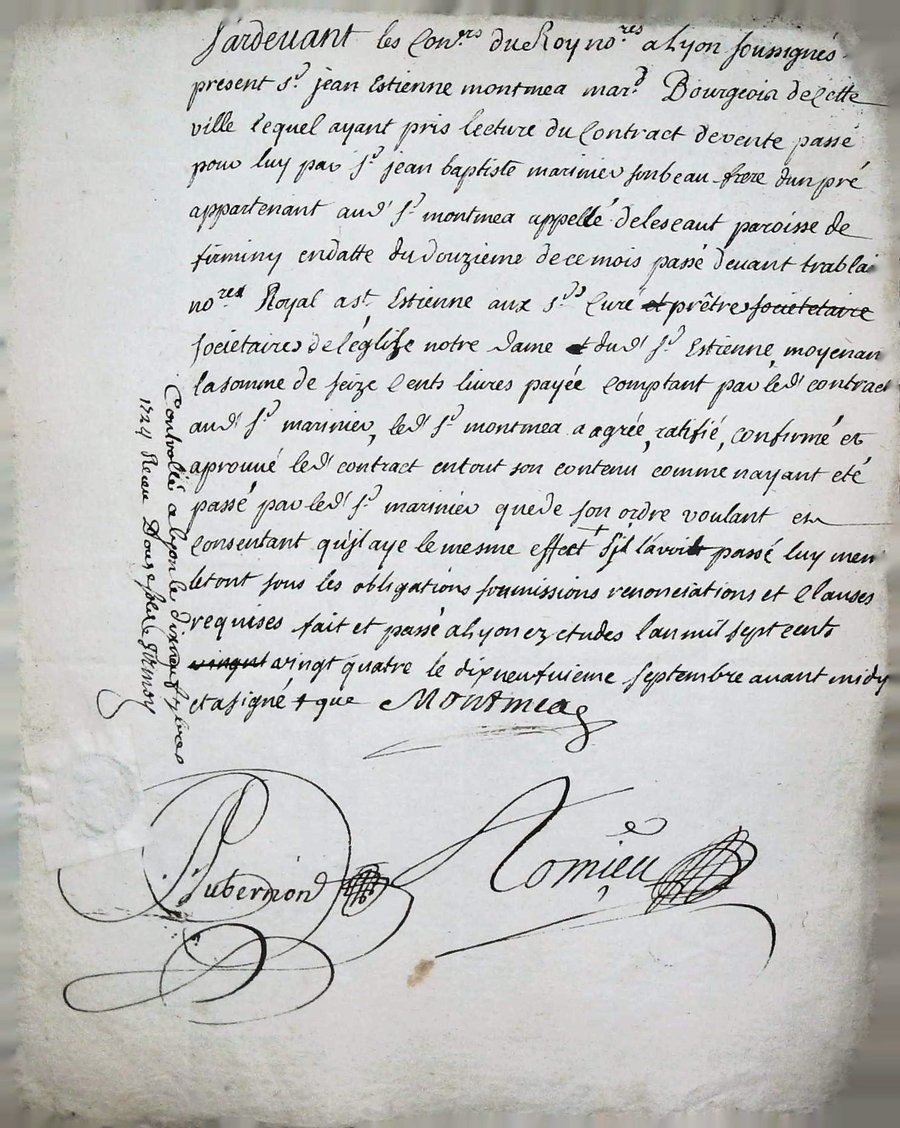 Pardevant les Con.ers du Roy no.res a Lyon soussignés
present S.r jean Estienne montmea mar.d Bourgeois de cette
ville lequel ayant pris lecture du Contract de vente passé
pour luy par S.r jean baptiste marinier son beau-frere d'un pré
appartenant aud. S.r montmea appellé de leseaut paroisse de
firminy en datte du douzieme de ce mois passé devant trablai
no.re Royal a S.t Estienne aux S.rs Curé et prêtres societetaire
sociétaires de l'église notre dame et dud. S.t Estienne, moyenan
la somme de seize Cents livres payée comptant par led. contract
aud. S.r marinier, led. S.r montmea a agrée, ratifié, confirmé et
aprouvé led. contract en tout son contenu comme n'ayant eté
passé par led. S.r marinier que de son ordre voulant et
Consentant qu'il aye le mesme effect s'il l'avoit passé luy mem
le tout sous les obligations soumissions renonciations et Clauses
requises fait et passé a Lyon ez etudes l'an mil sept cents
vingnt vingt quatre le dixneufvieme septembre avant midy
et a signé + que Montmea
Controllé a Lyon le dixneuf 7bres
1724 Receu Douse sols
Aubernon
Romieu